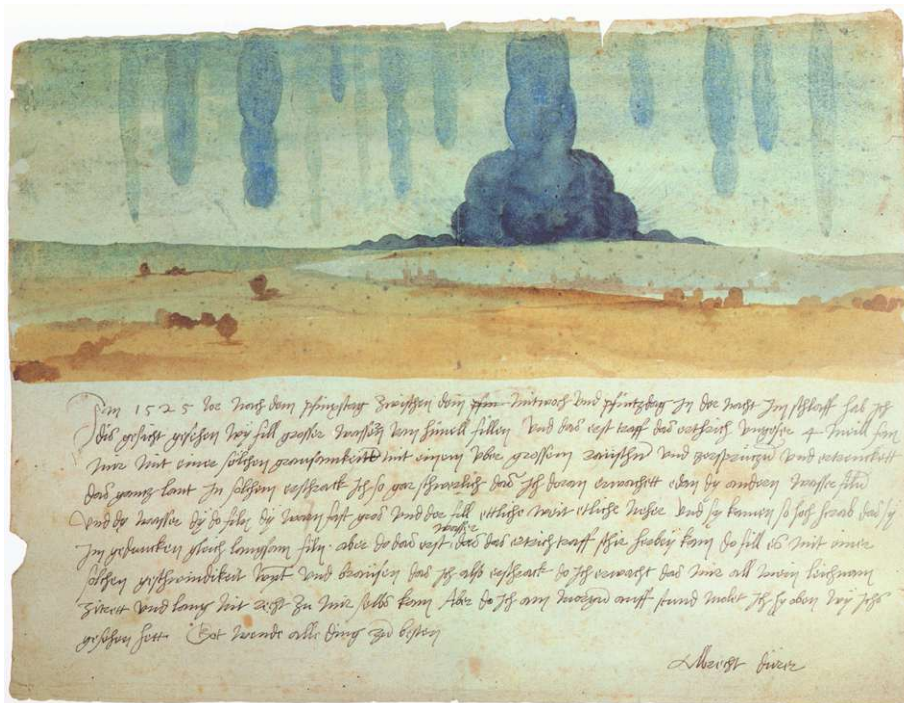 Im 1525 Jor nach dem pfinxstag zwischen dem mitwoch und pfintzdag in der nacht im schlaff hab ich
dis gesicht gesehen wy fill grosser wassern vom himell fillen Und das erst traff das erthrich ungefer 4 meill fan
mir mit einer solchen grausamkeitt mit einem uber grossem raüschn und zersprützn und ertrenckett
das gantz lant In solchem erschrack ich so gar schwerlich das ich doran erwachett edan dy andern wasser filn
Und dy wasser dy do filn dy warn fast gros und der fill ettliche weit etliche neher und sy kamen so hoch herab das sy
im gedancken gleich langsam filn. aber do das erst wasser das das ertrich traff schir herbey kam do fill es mit einer
solchen geschwindikeit wynt und braüsen das ich also erschrack do ich erwacht das mir all mein leichnam
zitrett und lang nit recht zu mir selbs kam Aber do ich am morgn auff stund malet ich hy oben wy ichs
gesehen hett. Got wende alle ding zw besten
Albrecht dürer